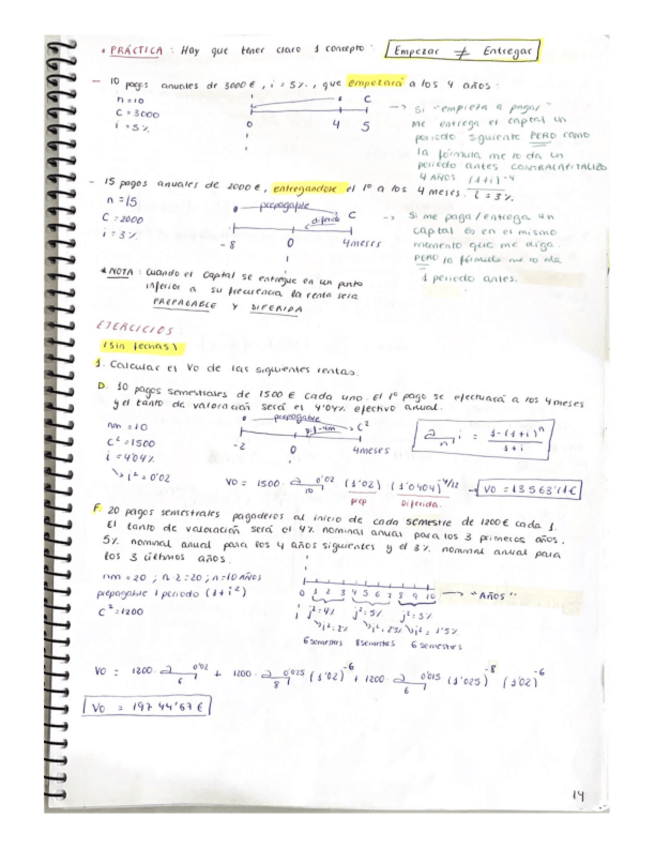 • PRÁCTICA : Hay que tener claro 1 concepto : Empezar ≠ Entregar
— 10 pagos anuales de 3000 €, i = 5%, que empezará a los 4 años :
n = 10
C = 3000
i = 5%
C
0 4 5
→ Si "empieza a pagar"
me entrega el capital un
periodo siguiente PERO como
la fórmula me lo da un
periodo antes CONTRACAPITALIZO
4 AÑOS (1+i)^-4
- 15 pagos anuales de 2000 €, entregandose el 1º a los 4 meses. i = 3%.
n = 15
C = 2000
i = 3%
prepagable
diferido
C
-8 0 4 meses
→ Si me paga/entrega un
capital es en el mismo
momento que me diga.
PERO la fórmula me lo da
1 periodo antes.
* NOTA : Cuando el capital se entregue en un punto
inferior a su frecuencia la renta será
PREPAGABLE Y DIFERIDA
EJERCICIOS :
(Sin fechas)
1. Calcular el Vo de las siguientes rentas.
D. 10 pagos semestrales de 1500 € cada uno. El 1º pago se efectuará a los 4 meses
y el tanto de valoración será el 4'04% efectivo anual.
nm = 10
C² = 1500
i = 4'04%
↘ i² = 0'02
prepagable
C²
-2 0 4 meses
a n i = 1-(1+i)^n / 1+i
Vo = 1500 · a 10 0'02 (1'02) (1'0404)^-4/12 → Vo = 13563'11 €
prep Diferida.
F. 20 pagos semestrales pagaderos al inicio de cada semestre de 1200 € cada 1.
El tanto de valoración será el 4% nominal anual para los 3 primeros años,
5% nominal anual para los 4 años siguientes y el 3% nominal anual para
los 3 últimos años.
nm = 20 ; n·2 = 20 ; n = 10 AÑOS
prepagable 1 periodo (1+i²)
C² = 1200
0 1 2 3 4 5 6 7 8 9 10 → "AÑOS"
j² = 4% j² = 5% j² = 3%
↘ i² = 2% ↘ i² = 2'5% ↘ i² = 1'5%
6 semestres 8 semestres 6 semestres
Vo = 1200 · a 6 0'02 + 1200 · a 8 0'025 (1'02)^-6 + 1200 · a 6 0'015 (1'025)^-8 (1'02)^-6
Vo = 19744'67 €
14